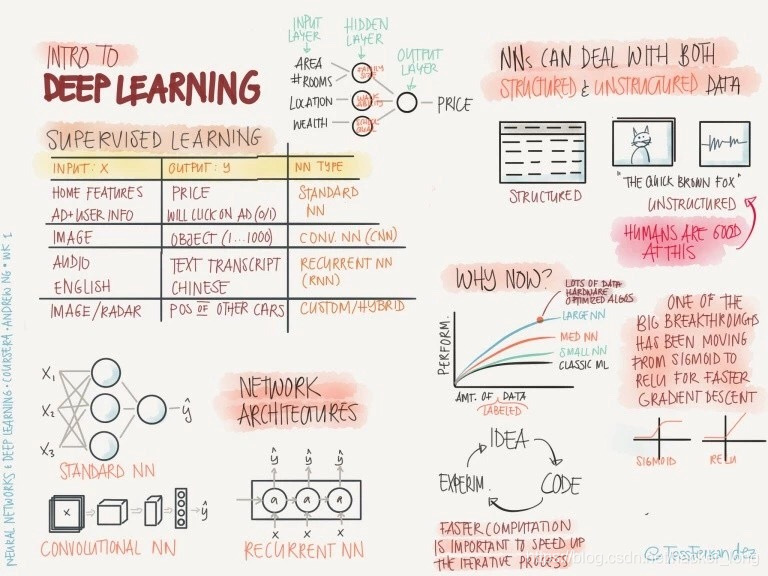 INTRO TO
DEEP LEARNING
INPUT LAYER
HIDDEN LAYER
OUTPUT LAYER
AREA
#ROOMS
LOCATION
WEALTH
PRICE
SUPERVISED LEARNING
INPUT: X OUTPUT: Y NN TYPE
HOME FEATURES PRICE STANDARD
AD+USER INFO WILL CLICK ON AD (0/1) NN
IMAGE OBJECT (1...1000) CONV. NN (CNN)
AUDIO TEXT TRANSCRIPT RECURRENT NN
ENGLISH CHINESE (RNN)
IMAGE/RADAR POS OF OTHER CARS CUSTOM/HYBRID
X₁
X₂
X₃
ŷ
STANDARD NN
X
ŷ
CONVOLUTIONAL NN
NETWORK
ARCHITECTURES
ŷ ŷ ŷ
a a a
X X X
RECURRENT NN
NNs CAN DEAL WITH BOTH
STRUCTURED & UNSTRUCTURED DATA
STRUCTURED
"THE QUICK BROWN FOX"
UNSTRUCTURED
HUMANS ARE GOOD
AT THIS
WHY NOW?
LOTS OF DATA
HARDWARE
OPTIMIZED ALGOS
LARGE NN
MED NN
SMALL NN
CLASSIC ML
PERFORM.
AMT. OF DATA
LABELED
ONE OF THE
BIG BREAKTHROUGHS
HAS BEEN MOVING
FROM SIGMOID TO
RELU FOR FASTER
GRADIENT DESCENT
SIGMOID
RELU
IDEA
CODE
EXPERIM.
FASTER COMPUTATION
IS IMPORTANT TO SPEED UP
THE ITERATIVE PROCESS
@TessFerrandez
NEURAL NETWORKS & DEEP LEARNING · COURSERA · ANDREW NG · WK 1